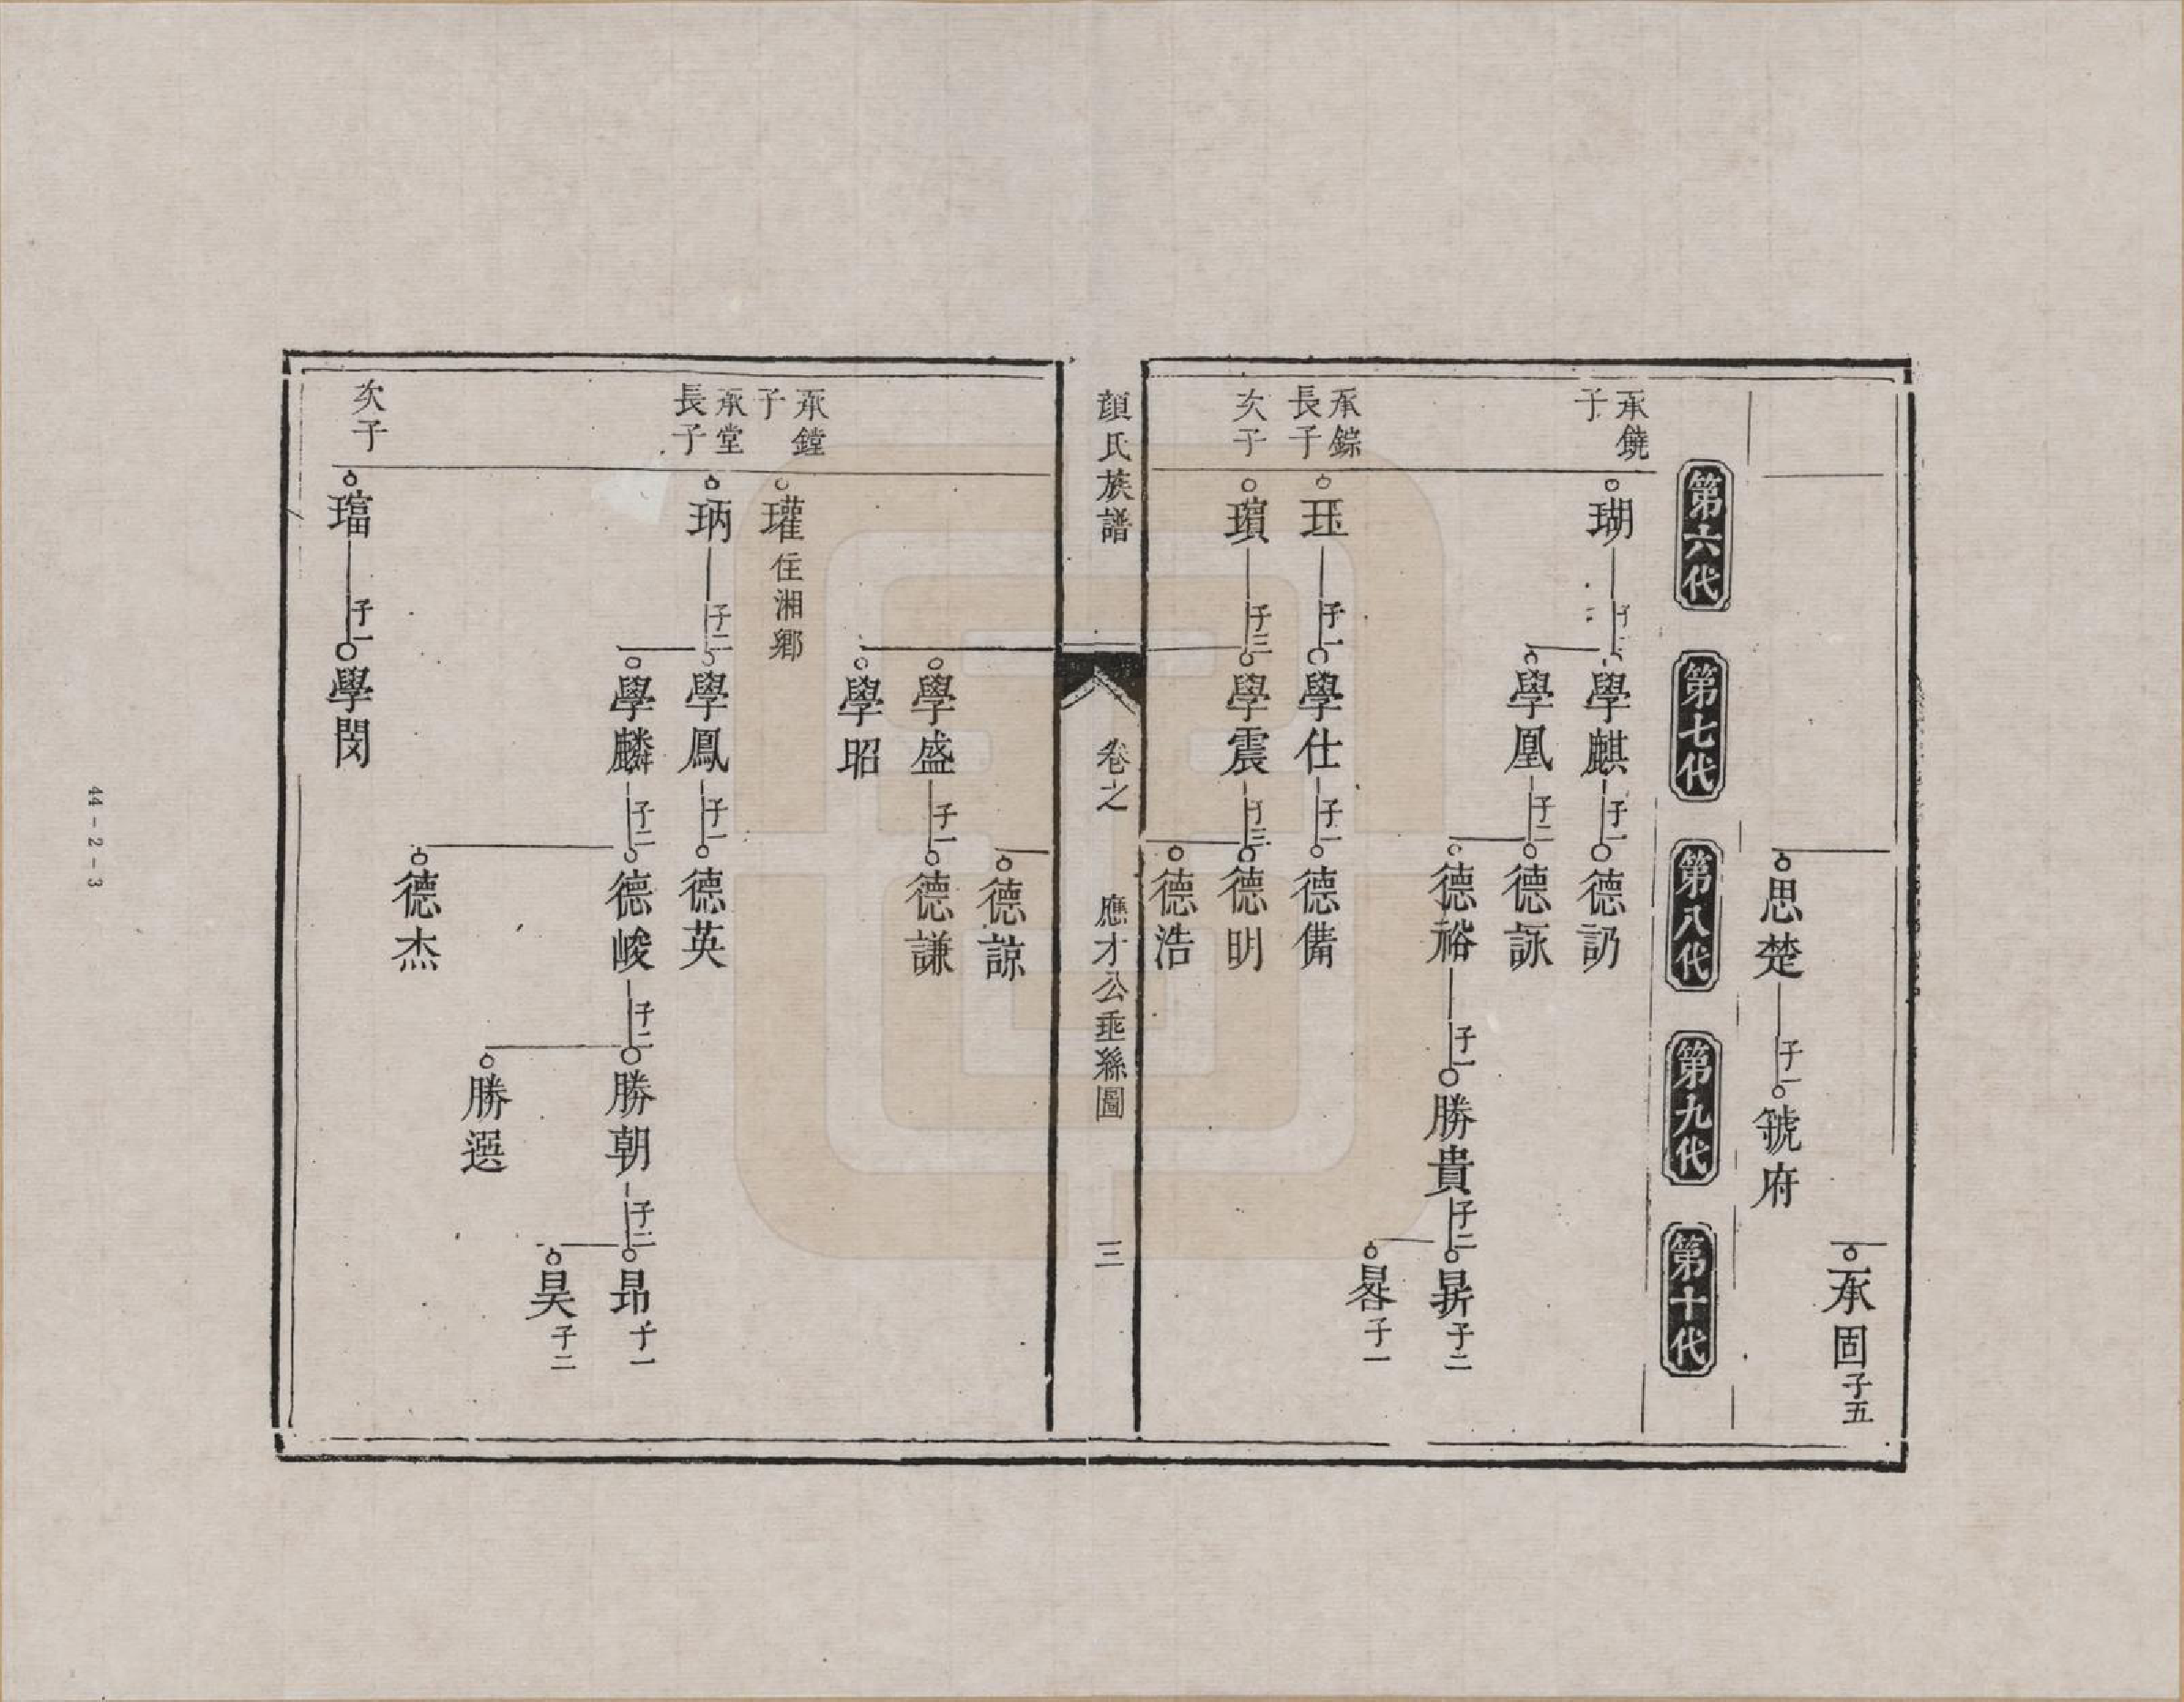 承固子五
思楚子一號府
第六代 第七代 第八代 第九代 第十代
承鐃子
瑚 學麒子一德訒
學凰子二德詠
德裕子一勝貴子二㫼子二
晷子一
承錝長子
珏子一學仕子一德備
次子
璌子三學震子三德明
德浩
顏氏族譜 卷之 應才公垂絲圖 三
德諒
學盛子一德謙
學昭
承鏜子
瓘住湘鄉
承堂長子
昞子二學鳳子一德英
學麟子二德峻子二勝朝子二昂子一
昊子二
勝選
德杰
次子
璢子一學閔
44-2-3